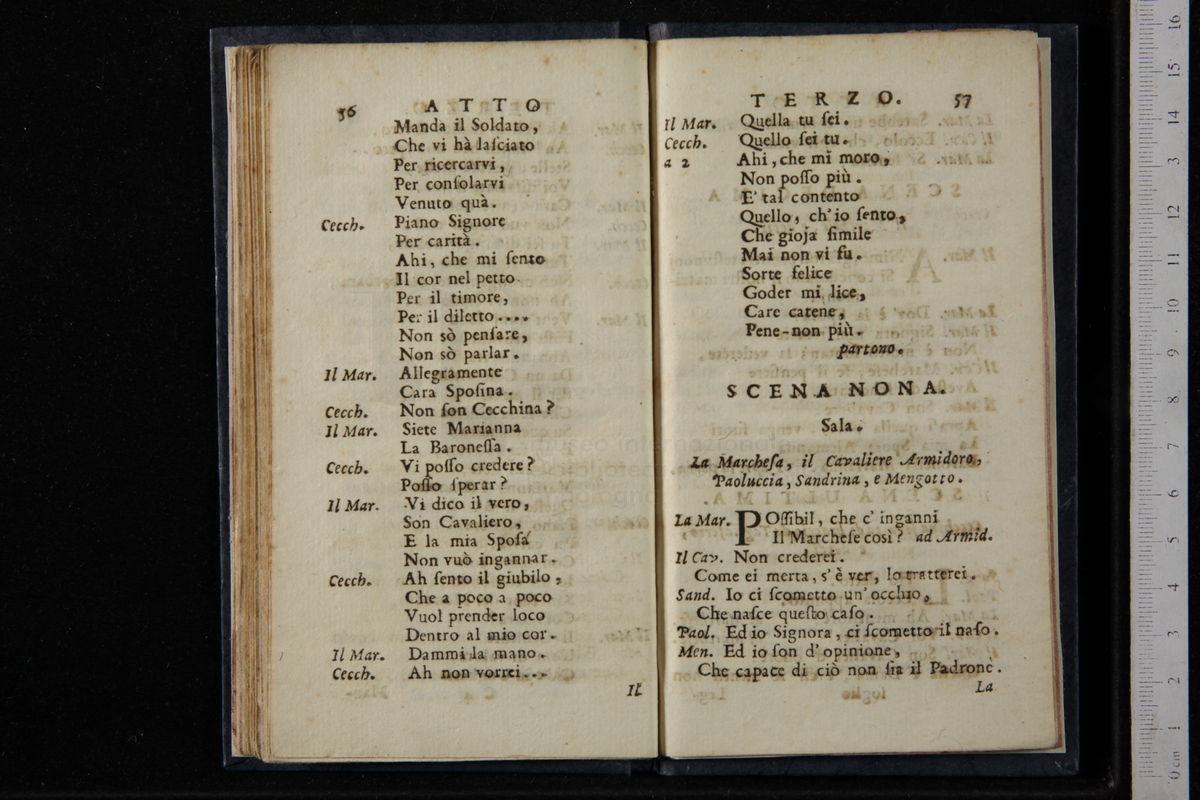 56 ATTO
Manda il Soldato,
Che vi hà laſciato
Per ricercarvi,
Per conſolarvi
Venuto quà.
Cecch. Piano Signore
Per carità.
Ahi, che mi ſento
Il cor nel petto
Per il timore,
Per il diletto....
Non sò penſare,
Non sò parlar.
Il Mar. Allegramente
Cara Spoſina.
Cecch. Non ſon Cecchina?
Il Mar. Siete Marianna
La Baroneſſa.
Cecch. Vi poſſo credere?
Poſſo ſperar?
Il Mar. Vi dico il vero,
Son Cavaliero,
E la mia Spoſa
Non vuò ingannar.
Cecch. Ah ſento il giubilo,
Che a poco a poco
Vuol prender loco
Dentro al mio cor.
Il Mar. Dammi la mano.
Cecch. Ah non vorrei...
Il
TERZO. 57
Il Mar. Quella tu ſei.
Cecch. Quello ſei tu.
a 2 Ahi, che mi moro,
Non poſſo più.
E' tal contento
Quello, ch' io ſento,
Che gioja ſimile
Mai non vi fu.
Sorte felice
Goder mi lice,
Care catene,
Pene-non più.
partono.
SCENA NONA.
Sala.
La Marcheſa, il Cavaliere Armidoro,
Paoluccia, Sandrina, e Mengotto.
La Mar. POſſibil, che c' inganni
Il Marcheſe così? ad Armid.
Il Cav. Non crederei.
Come ei merta, s' è ver, lo tratterei.
Sand. Io ci ſcometto un' occhio,
Che naſce queſto caſo.
Paol. Ed io Signora, ci ſcometto il naſo.
Men. Ed io ſon d' opinione,
Che capace di ciò non ſia il Padrone.
La
16
15
14
13
12
11
10
9
8
7
6
5
4
3
2
1
0 cm